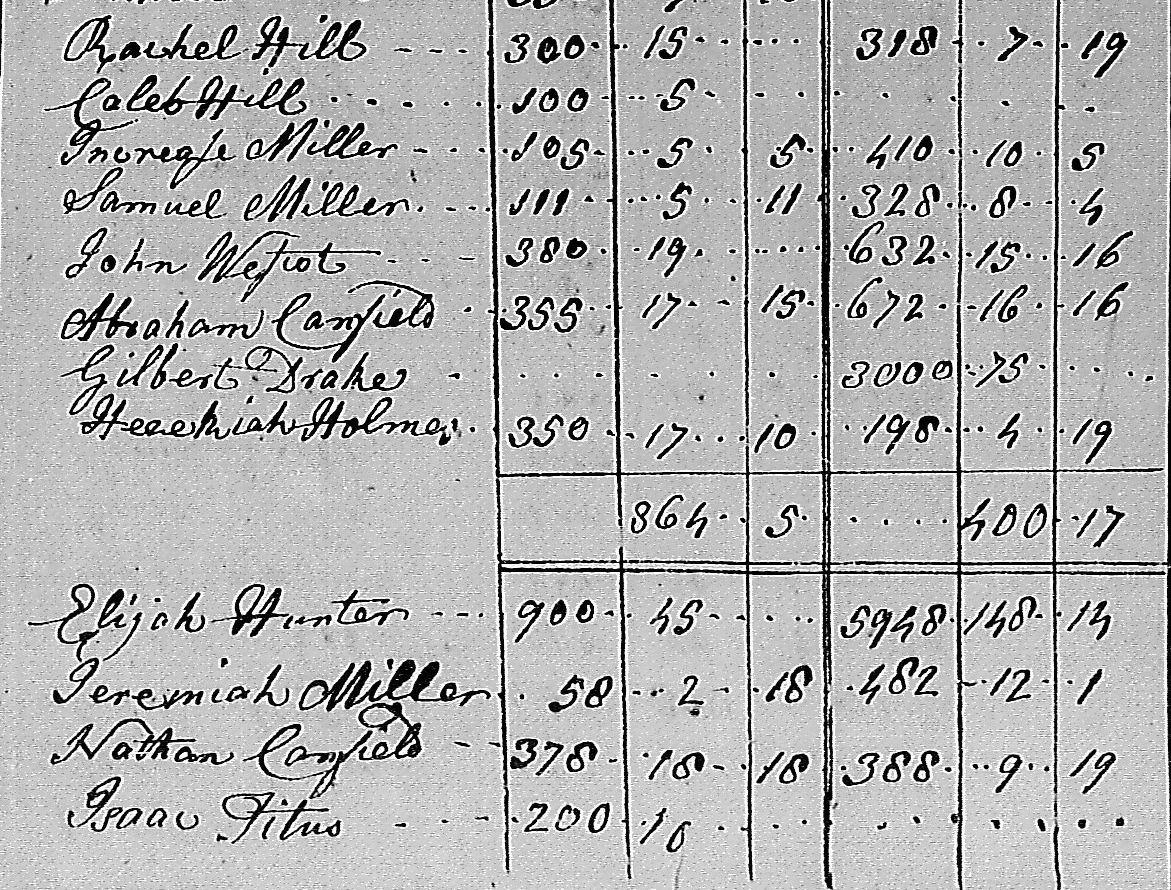 Rachel Hill 300 15 318 7 19
Caleb Hill 100 5
Increase Miller 105 5 5 410 10 5
Samuel Miller 111 5 11 328 8 4
John 380 19 632 15 16
Abraham Canfield 355 17 15 672 16 16
Gilbert Drake 3000 75
Holmes 350 17 10 198 4 19
864 5 400 17
Elijah Hunter 900 45 5948 148 14
Jeremiah Miller 58 2 18 482 12 1
Nathan Canfield 378 18 18 388 9 19
Isaac Titus 200 10